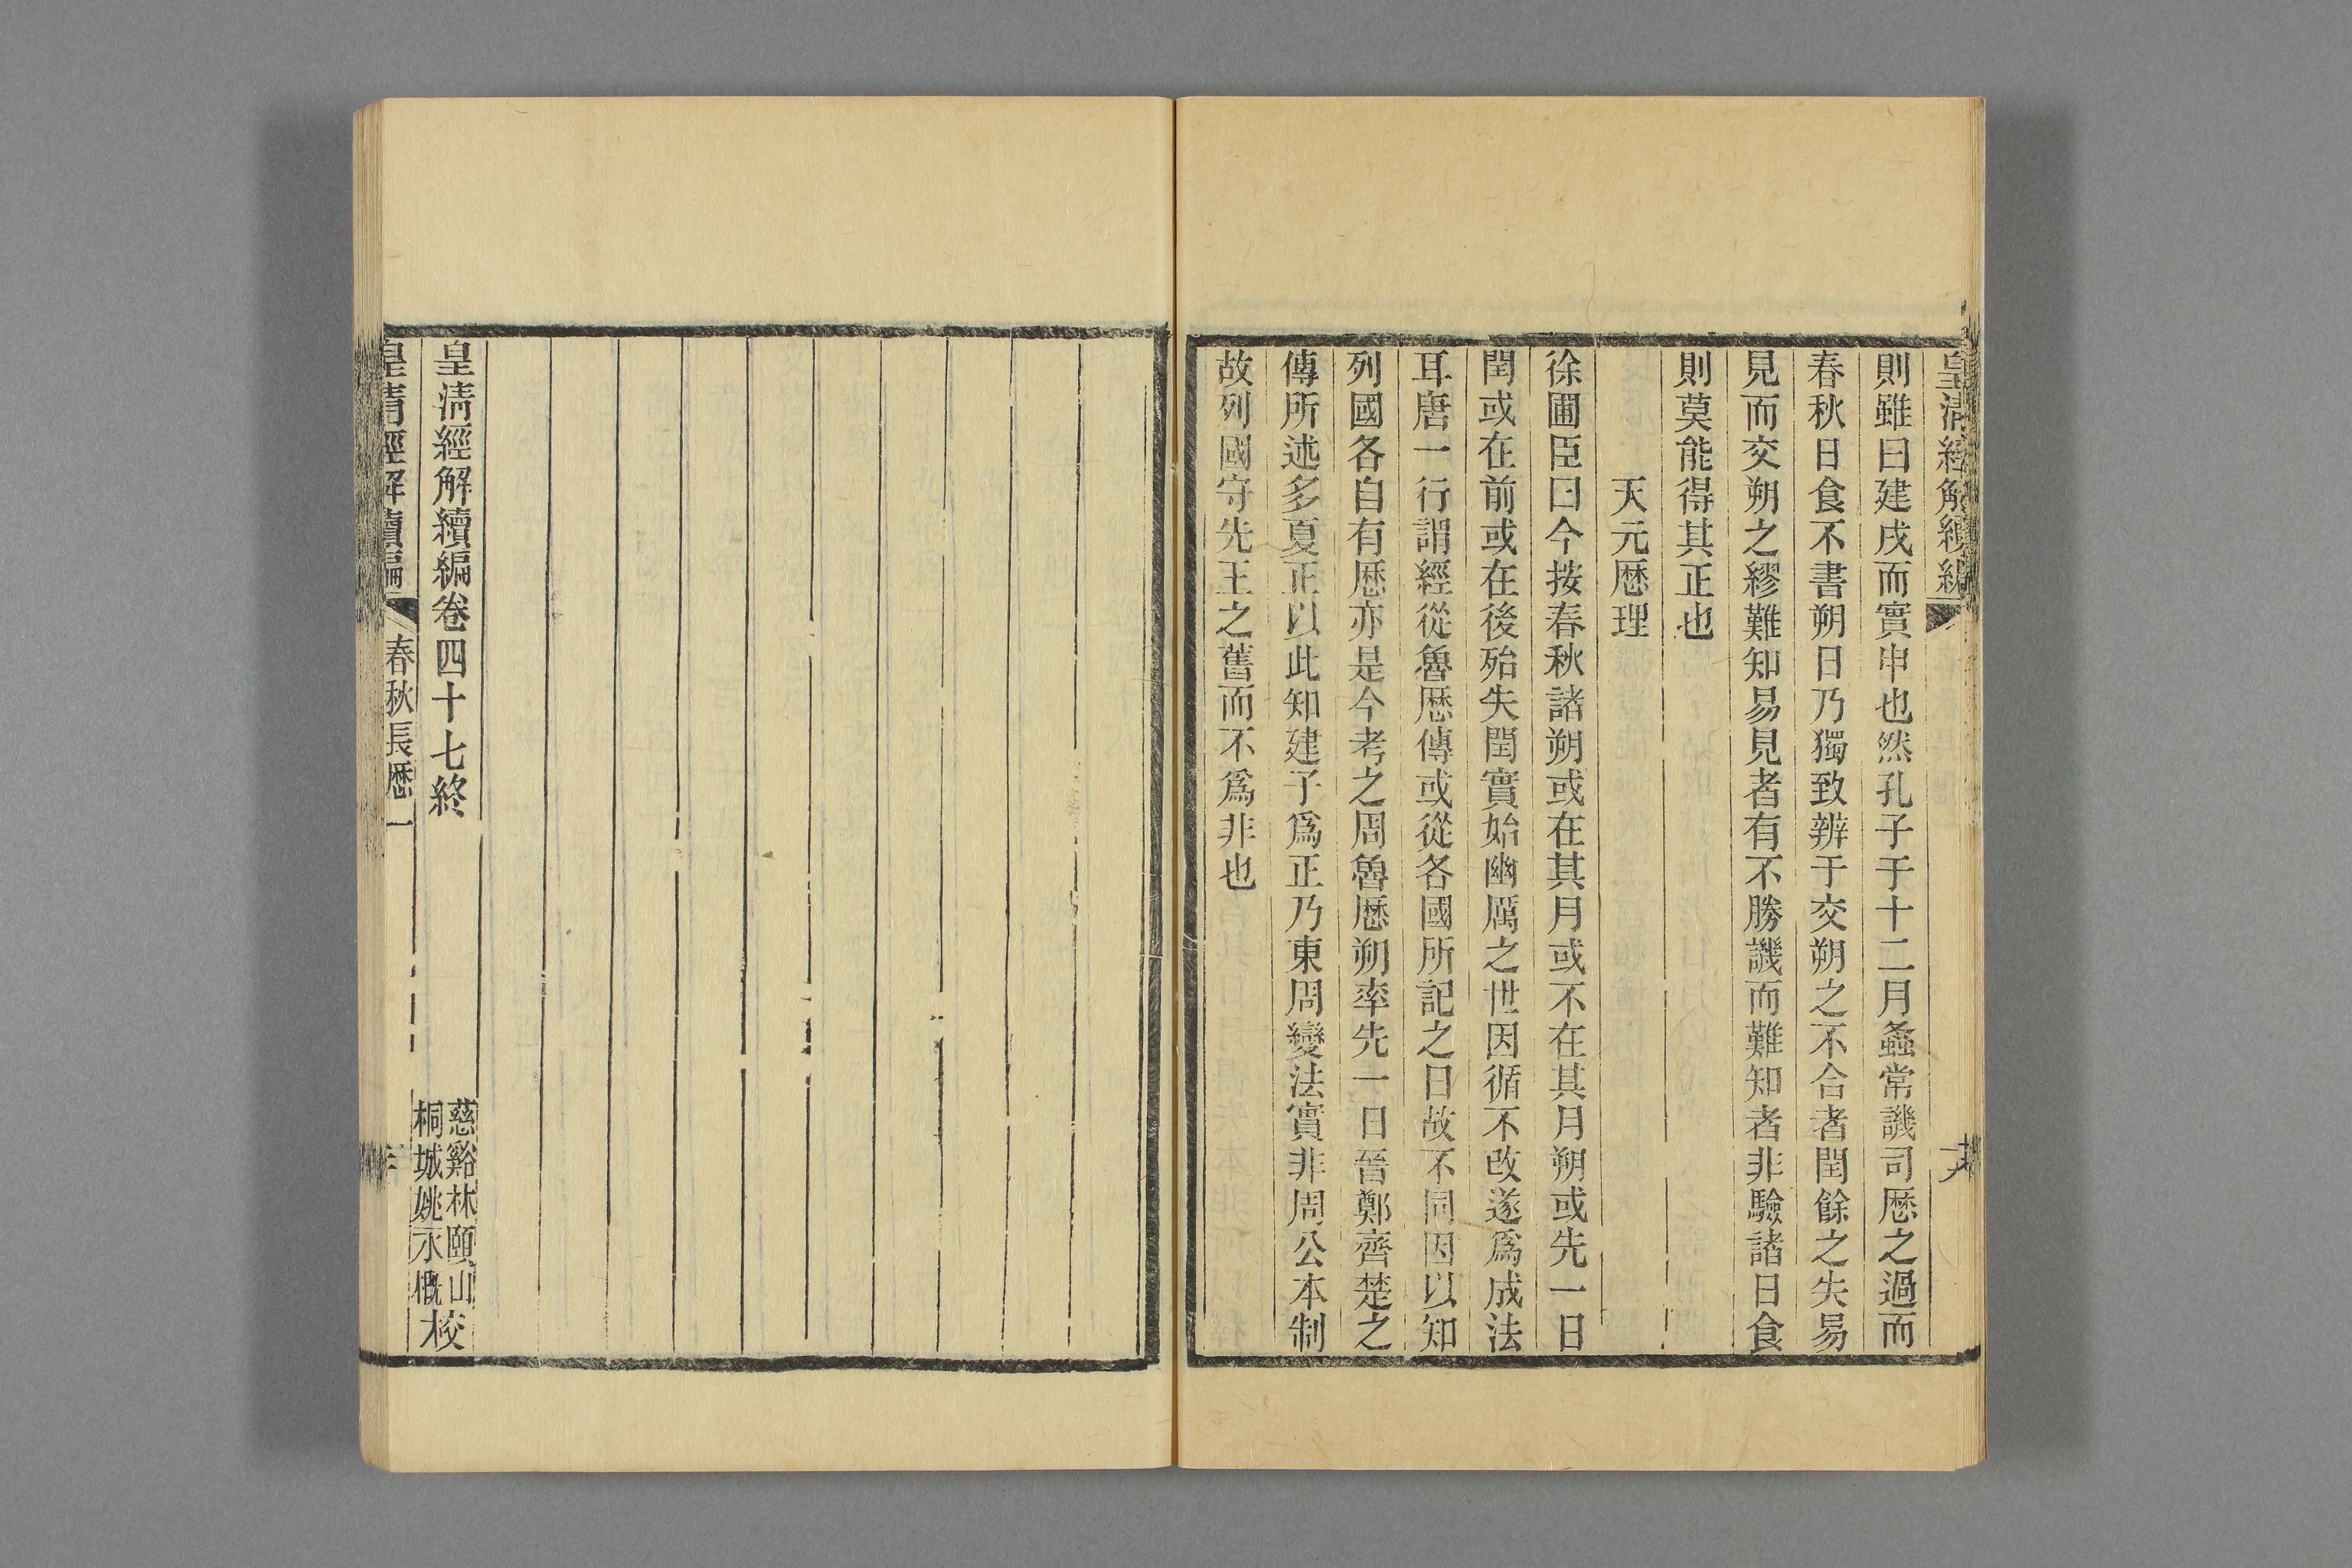 皇清經解續編
則雖曰建戌而實申也然孔子于十二月螽常譏司厯之過而
春秋日食不書朔日乃獨致辨于交朔之不合者閏餘之失易
見而交朔之繆難知易見者有不勝譏而難知者非驗諸日食
則莫能得其正也
天元厯理
徐圃臣曰今按春秋諸朔或在其月或不在其月朔或先一日
閏或在前或在後殆失閏實始幽厲之世因循不改遂爲成法
耳唐一行謂經從魯厯傳或從各國所記之日故不同因以知
列國各自有厯亦是今考之周魯厯朔率先一日晉鄭齊楚之
傳所述多夏正以此知建子爲正乃東周變法實非周公本制
故列國守先王之舊而不爲非也
皇清經解續編卷四十七終
慈谿林頤山
桐城姚永概
校
皇清經解續編
春秋長厯一